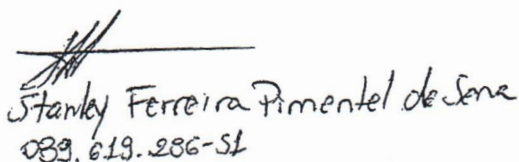 Stanley Ferreira Pimentel de Sena
089.619.286-51